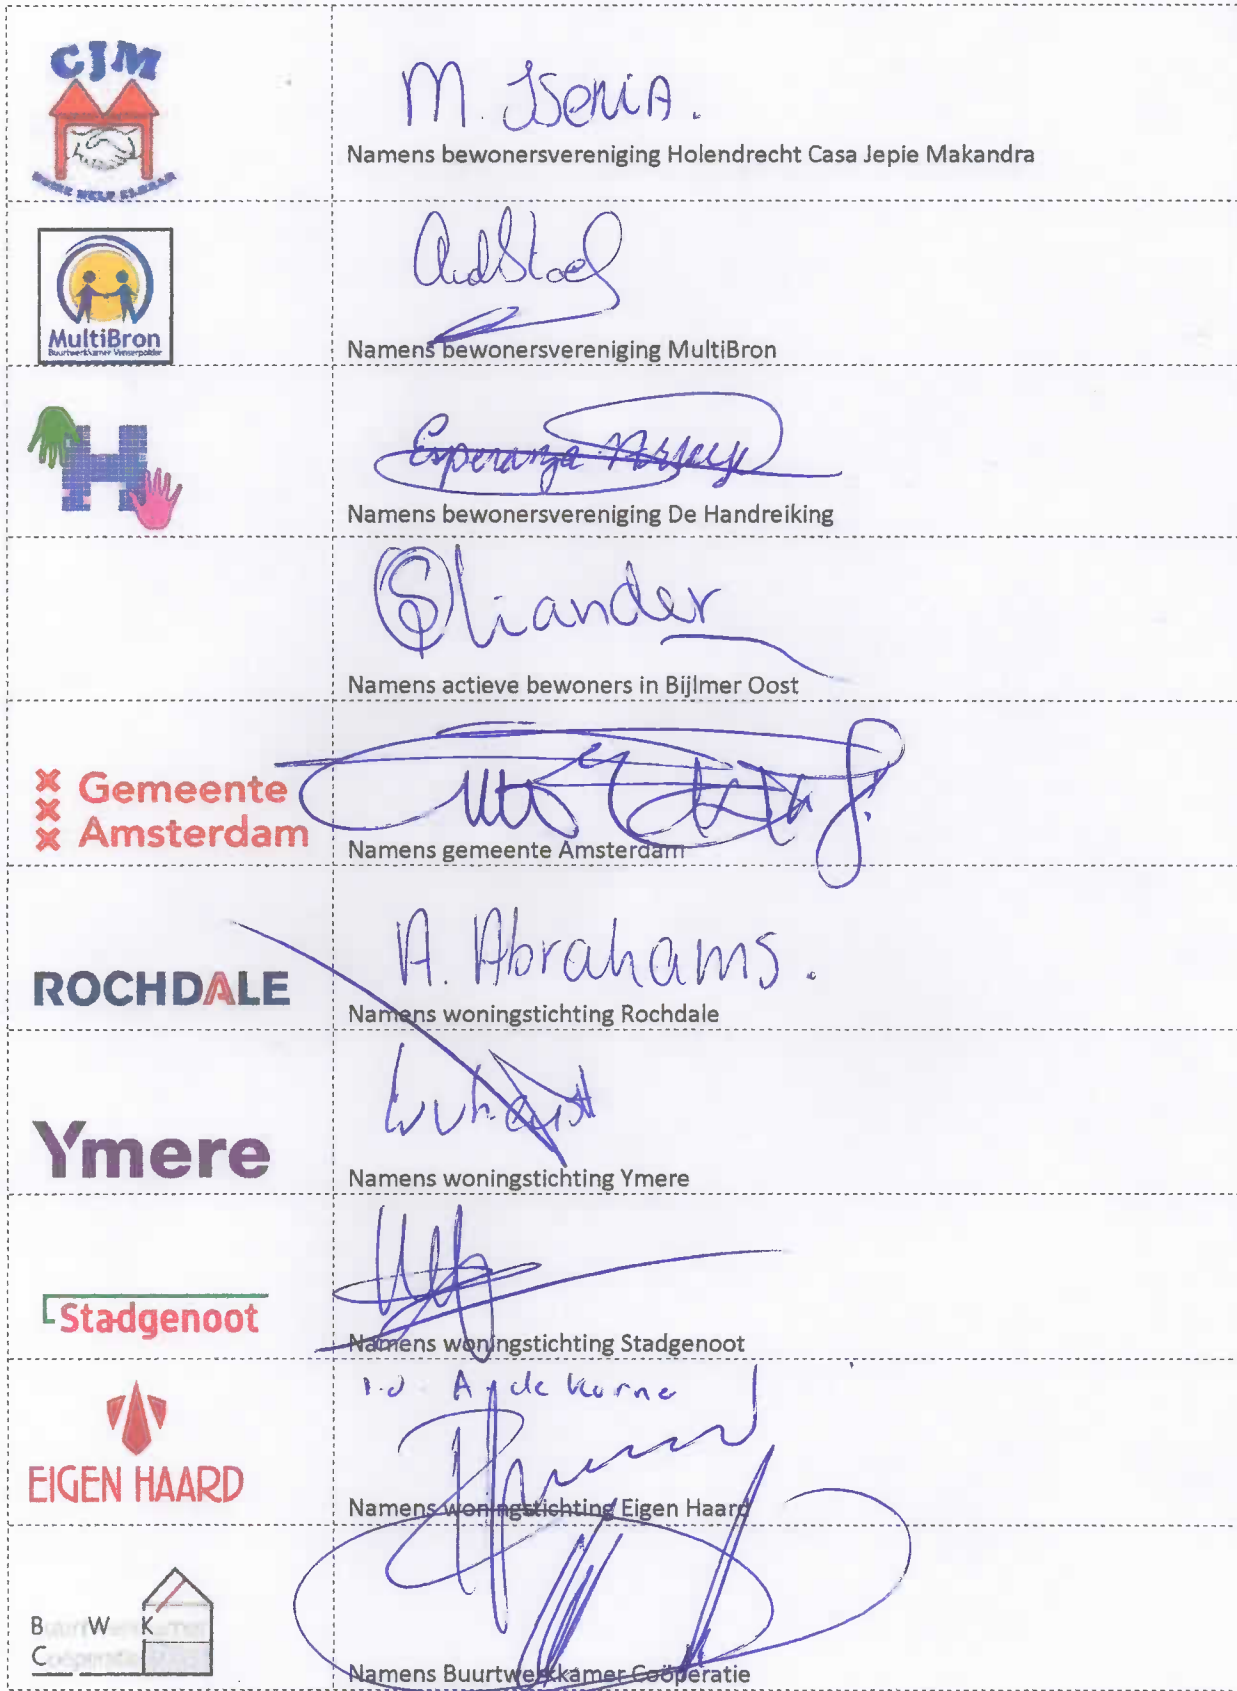 CJM
M. Isenia.
Namens bewonersvereniging Holendrecht Casa Jepie Makandra
MultiBron
Buurtwerkkamer Venserpolder
Namens bewonersvereniging MultiBron
H
Esperanza
Namens bewonersvereniging De Handreiking
Namens actieve bewoners in Bijlmer Oost
Gemeente
Amsterdam
Namens gemeente Amsterdam
ROCHDALE
A. Abrahams.
Namens woningstichting Rochdale
Ymere
Namens woningstichting Ymere
Stadgenoot
Namens woningstichting Stadgenoot
EIGEN HAARD
Namens woningstichting Eigen Haard
Buurtwerkkamer
Coöperatie
Namens Buurtwerkkamer Coöperatie